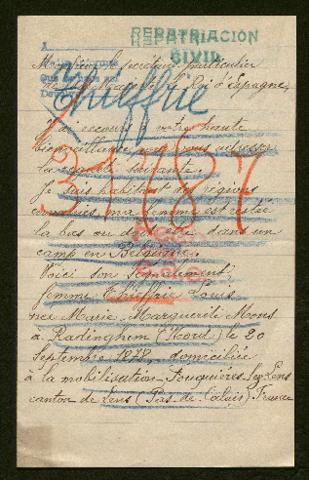 REPATRIACIÓN
CIVIL
A
Monsieur le secrétaire particulier
de Sa Majesté le Roi d'Espagne
J'ai recours à votre haute
bienveillance vous adresser
la requête suivante.
Je suis habitant des régions
envahies, ma femme est restée
là bas ou dans un
camp en Belgique.
Voici son signalement:
femme Thuffrie Louis
née Marie-Marguerite Mons
à Radinghem (Nord) le 20
Septembre 1878, domiciliée
à la mobilisation Fouquières-lez-Lens
canton de Lens (Pas-de-Calais) France